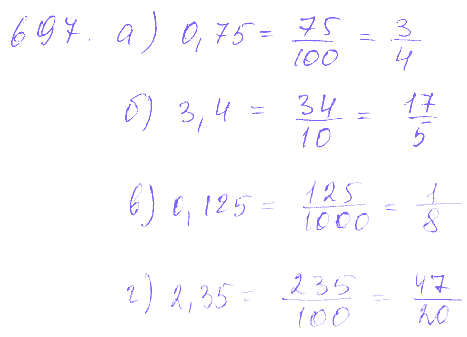 697. а) 0,75 = 75/100 = 3/4
б) 3,4 = 34/10 = 17/5
в) 0,125 = 125/1000 = 1/8
г) 2,35 = 235/100 = 47/20